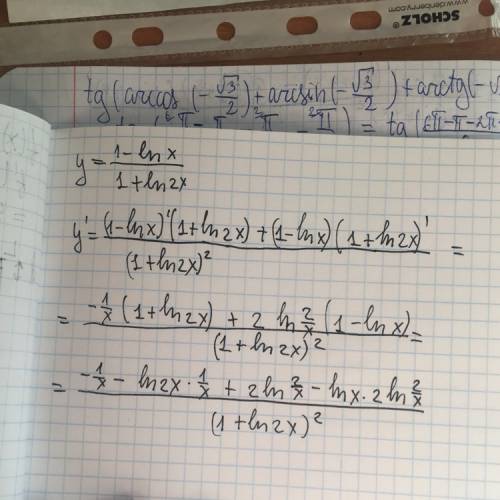 SCHOLZ
www.denberry.com
tg(arccos(-√3/2)+arcsin(-√3/2)+arctg(-√
= tg(
y = (1-ln x)/(1+ln2x)
y' = ((1-lnx)'(1+ln2x)+(1-lnx)(1+ln2x)')/(1+ln2x)² =
= (-1/x(1+ln2x) + 2 ln 2/x (1-lnx))/(1+ln2x)² =
= (-1/x - ln2x·1/x + 2ln 2/x - lnx·2ln 2/x)/(1+ln2x)²